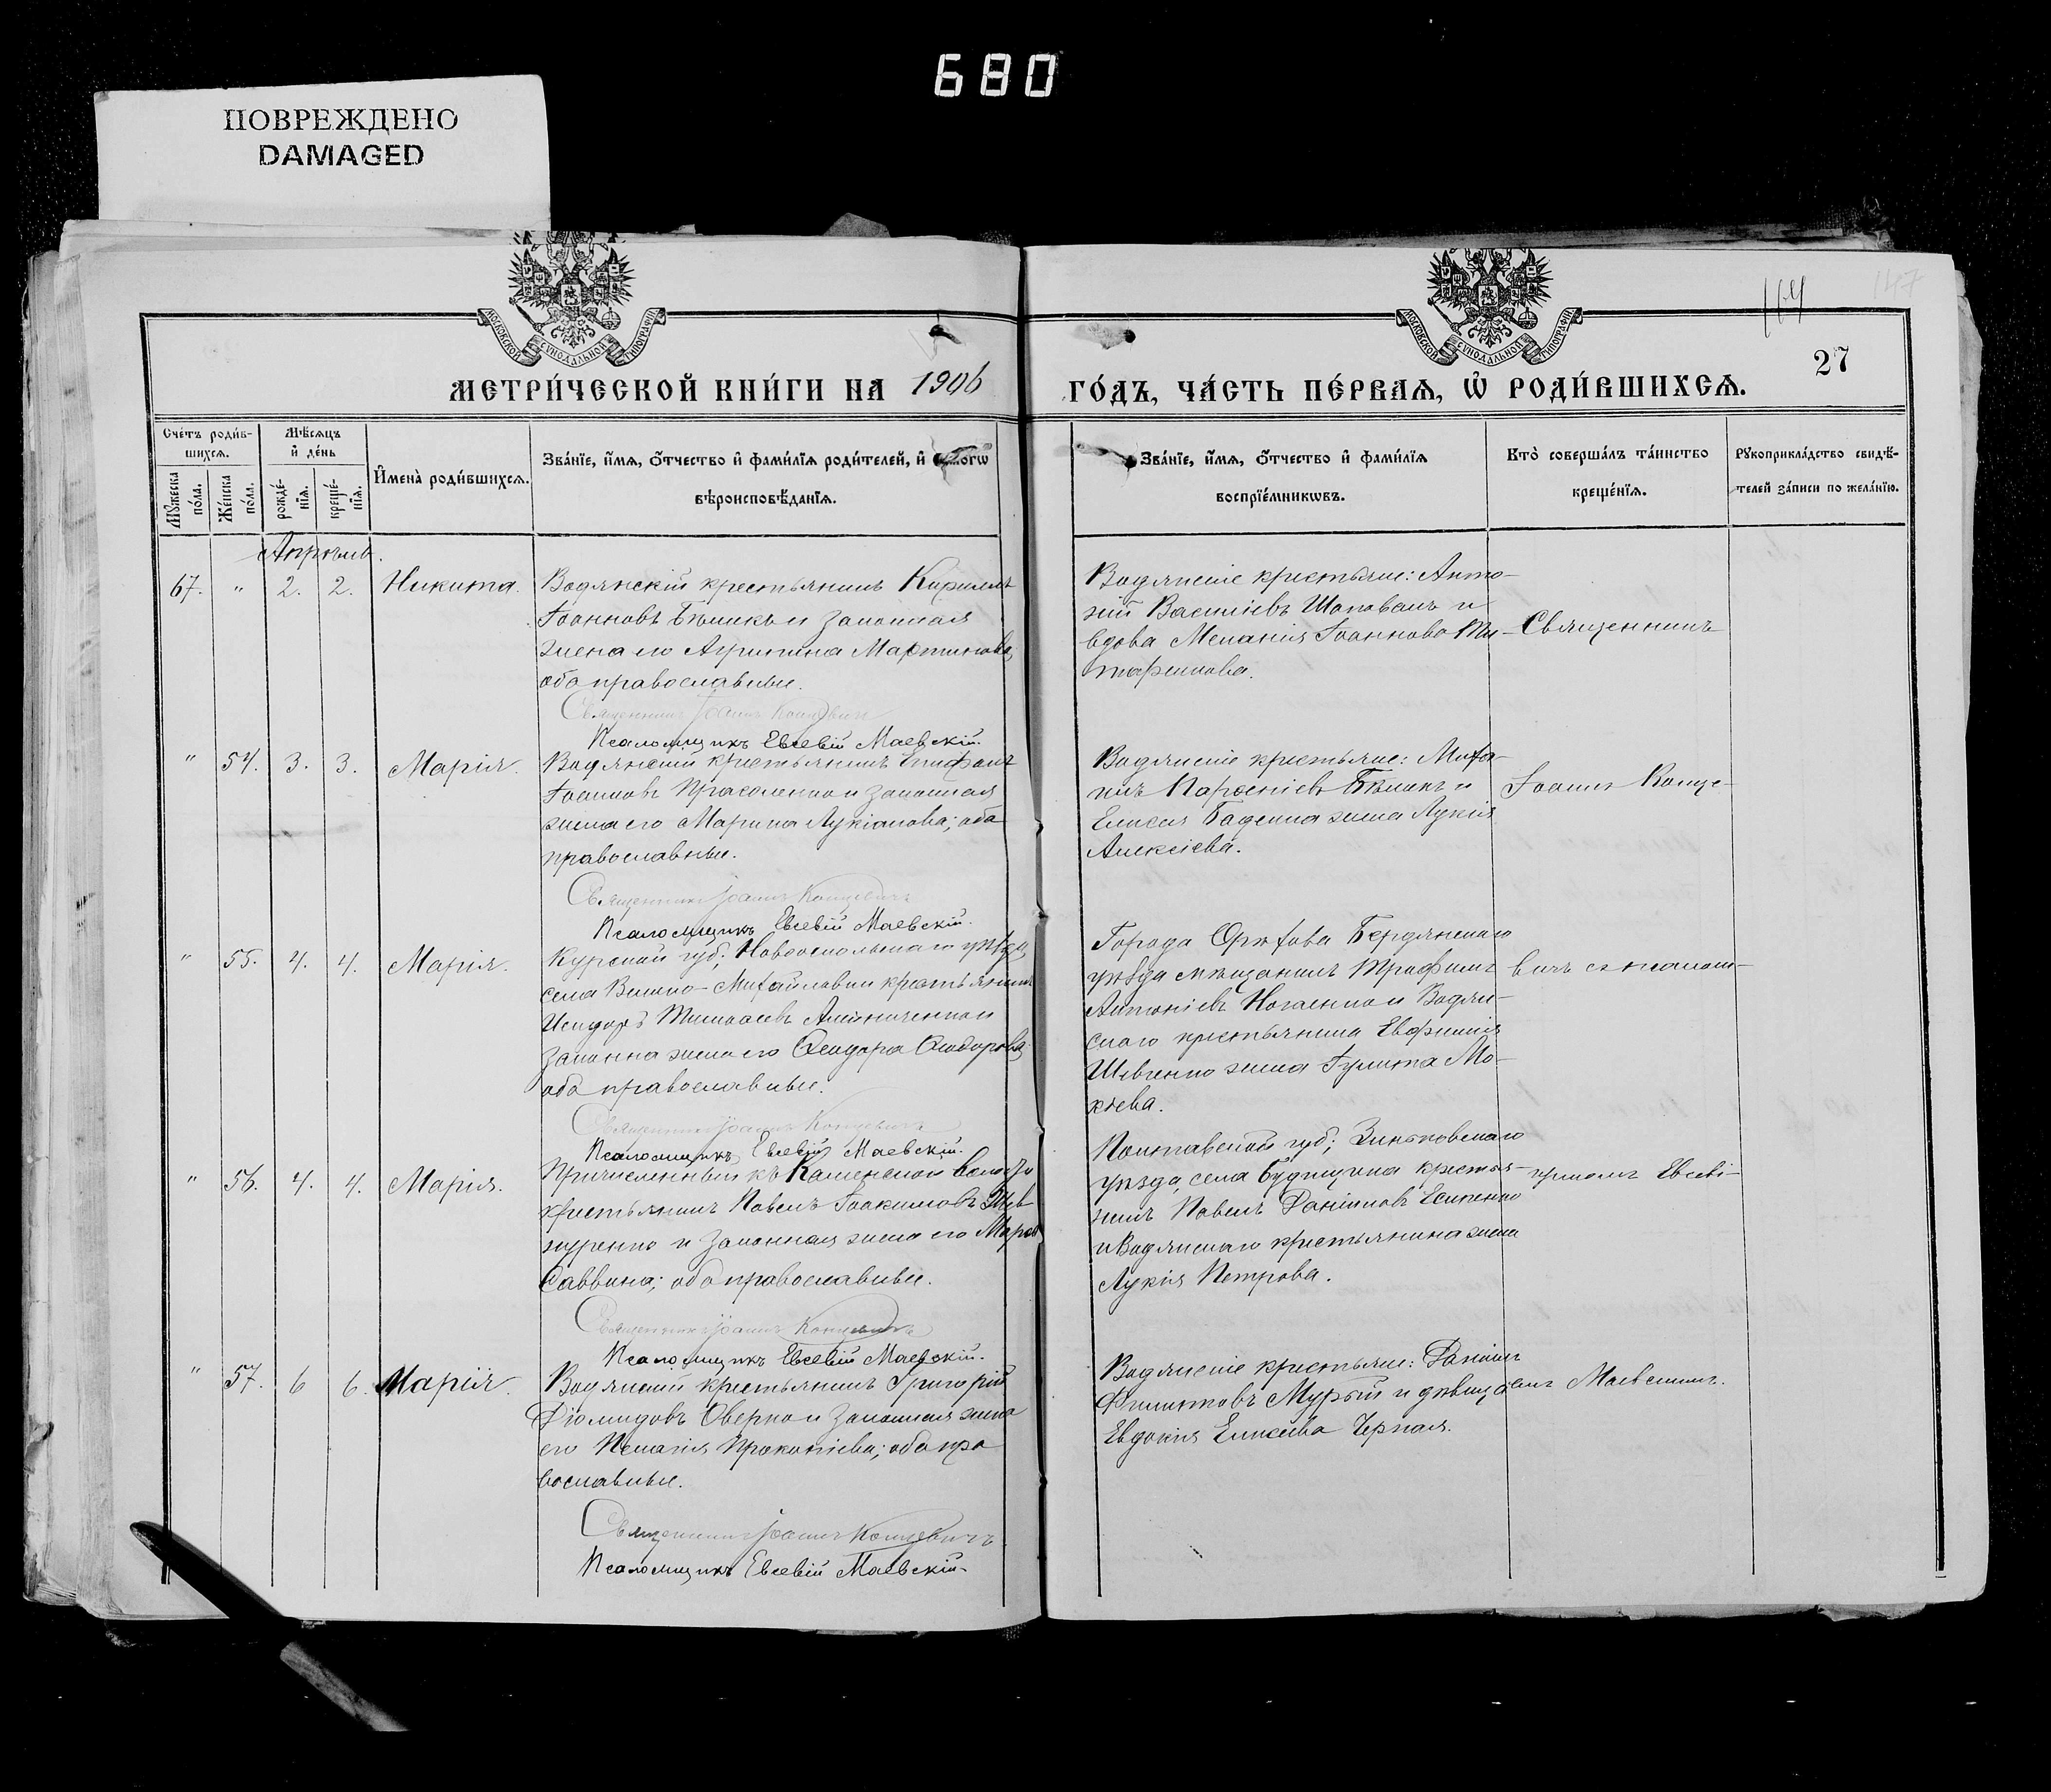 680
ПОВРЕЖДЕНО
DAMAGED
МОСКОВСКОЙ СУНОДАЛЬНОЙ ТИПОГРАФІИ
МОСКОВСКОЙ СУНОДАЛЬНОЙ ТИПОГРАФІИ
147
27
МЕТРИ́ЧЕСКОЙ КНИ́ГИ НА 1906 ГО́ДЪ, ЧА́СТЬ ПЕ́РВАЯ, Ѡ҆ РОДИ́ВШИХСЯ.
Сче́тъ роди́в-
шихся.
Мꙋ́жеска по́ла.
Же́нска по́ла.
Мѣ́сяцъ
и҆ де́нь
рожде́-
нїя.
креще́-
нїя.
И҆мена̀ роди́вшихся.
Зва́нїе, и҆́мя, ѻ҆́тчество и҆ фами́лїя роди́телей, и҆
вѣроисповѣ́данїя.
Зва́нїе, и҆́мя, ѻ҆́тчество и҆ фами́лїя
воспрїе́мникѡвъ.
Кто̀ соверша́лъ та́инство
креще́нїя.
Рꙋкоприкла́дство свидѣ́-
телей за́писи по жела́нїю.
Апрѣль.
67. " 2. 2. Никита.
Водянскій крестьянинъ Кириллъ
Іоанновъ Бѣликъ и законная
жена его Агрипина Мартинова,
оба православные.
Священникъ Іоаннъ Концевичъ
Псаломщикъ Евсевій Маевскій.
Водянскіе крестьяне: Анто-
ній Василіевъ Шаповалъ и
вдова Меланія Іоаннова
Священникъ
" 54. 3. 3. Марія.
Водянскій крестьянинъ Епифанъ
Іоанновъ Прасоленко и законная
жена его Марина Лукіанова; оба
православные.
Священникъ Іоаннъ Концевичъ
Псаломщикъ Евсевій Маевскій.
Водянскіе крестьяне: Миха-
илъ Парѳеніевъ Бѣликъ и
Елисея жена Лукія
Алексіева.
Іоаннъ Конце-
" 55. 4. 4. Марія.
Курской губ; Новооскольскаго уѣзда,
села Михайловки крестьянинъ
Исидоръ
законна жена его Ѳеодора Ѳеодорова
оба православные.
Священникъ Іоаннъ Концевичъ
Псаломщикъ Евсевій Маевскій.
Города Орѣхова Бердянскаго
уѣзда мѣщанинъ Трифонъ
Антоніевъ Ногаенко и Водян-
скаго крестьянина Евфимія
Шевченко жена Іулита Мо-
кіева.
вичъ съ псалом-
" 56. 4. 4. Марія.
Причисленный къ Каменской волости
крестьянинъ Павелъ Іоакимовъ
и законная жена его
Саввина; оба православные.
Священникъ Іоаннъ Концевичъ
Псаломщикъ Евсевій Маевскій.
Полтавской губ; Зиньковскаго
уѣзда, села Будищина крестья-
нинъ Павелъ Даніиловъ Есипенко
и Водянскаго крестьянина жена
Лукія Петрова.
щикомъ Евсеві-
" 57. 6 6. Марія.
Водянскій крестьянинъ Григорій
Діомидовъ Оверко и законная жена
его Пелагія Прокопіева; оба пра
вославные.
Священникъ Іоаннъ Концевичъ
Псаломщикъ Евсевій Маевскій.
Водянскіе крестьяне: Даніилъ
Филипповъ Мурый и дѣвица
Евдокія Елисеева Черная.
емъ Маевскимъ.